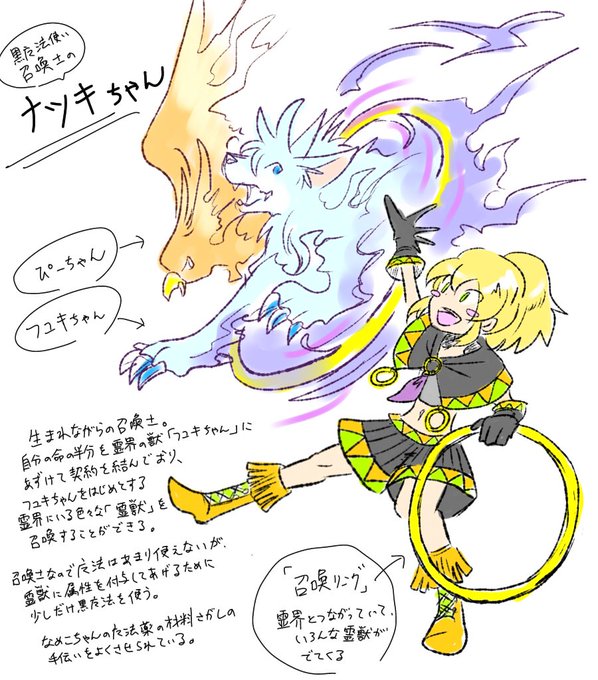 黒魔法使い
召喚士の
ナツキちゃん
ぴーちゃん
フユキちゃん
生まれながらの召喚士。
自分の命の半分を霊界の獣「フユキちゃん」に
あずけて契約を結んでおり、
フユキちゃんをはじめとする
霊界にいる色々な「霊獣」を
召喚することができる。
召喚士なので魔法はあまり使えないが、
霊獣に属性を付与してあげるために
少しだけ黒魔法を使う。
なめこちゃんの魔法薬の材料さがしの
手伝いをよくさせられている。
「召喚リング」
霊界とつながっていて、
いろんな霊獣が
でてくる